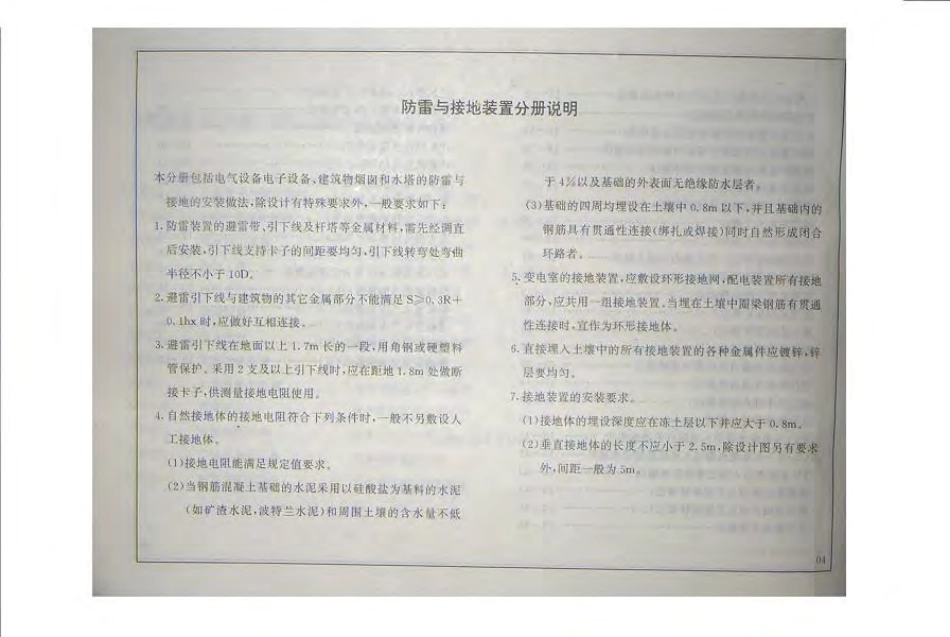 防雷与接地装置分册说明
本分册包括电气设备电子设备、建筑物烟囱和水塔的防雷与
接地的安装做法,除设计有特殊要求外,一般要求如下:
1.防雷装置的避雷带、引下线及杆塔等金属材料,需先经调直
后安装,引下线支持卡子的间距要均匀,引下线转弯处弯曲
半径不小于10D。
2.避雷引下线与建筑物的其它金属部分不能满足S≥0.3R+
0.1hx时,应做好互相连接。
3.避雷引下线在地面以上1.7m长的一段,用角钢或硬塑料
管保护。采用2支及以上引下线时,应在距地1.8m处做断
接卡子,供测量接地电阻使用。
4.自然接地体的接地电阻符合下列条件时,一般不另敷设人
工接地体。
(1)接地电阻能满足规定值要求。
(2)当钢筋混凝土基础的水泥采用以硅酸盐为基料的水泥
(如矿渣水泥,波特兰水泥)和周围土壤的含水量不低
于4%以及基础的外表面无绝缘防水层者。
(3)基础的四周均埋设在土壤中0.8m以下,并且基础内的
钢筋具有贯通性连接(绑扎或焊接)同时自然形成闭合
环路者。
5.变电室的接地装置,应敷设环形接地网,配电装置所有接地
部分,应共用一组接地装置。当埋在土壤中圈梁钢筋有贯通
性连接时,宜作为环形接地体。
6.直接埋入土壤中的所有接地装置的各种金属件应镀锌,锌
层要均匀。
7.接地装置的安装要求。
(1)接地体的埋设深度应在冻土层以下并应大于0.8m。
(2)垂直接地体的长度不应小于2.5m,除设计图另有要求
外,间距一般为5m。
04